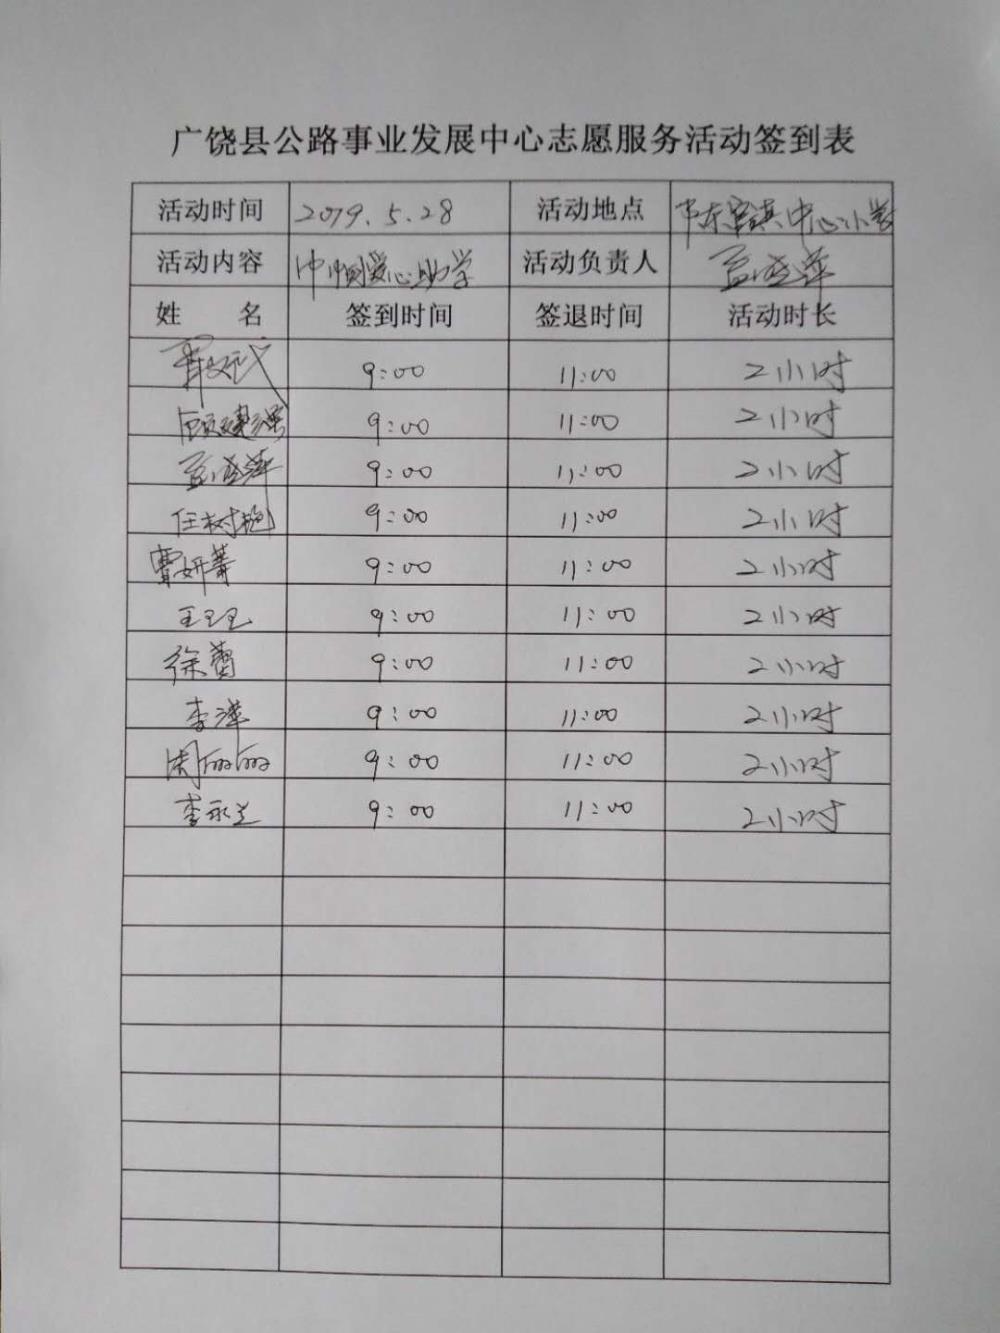 广饶县公路事业发展中心志愿服务活动签到表
活动时间 2019.5.28 活动地点 中心小学
活动内容 巾帼爱心助学 活动负责人
姓 名 签到时间 签退时间 活动时长
9:00 11:00 2小时
顾建强 9:00 11:00 2小时
9:00 11:00 2小时
任树艳 9:00 11:00 2小时
曹妍菁 9:00 11:00 2小时
王玉玉 9:00 11:00 2小时
徐蕾 9:00 11:00 2小时
李萍 9:00 11:00 2小时
周丽丽 9:00 11:00 2小时
李永兰 9:00 11:00 2小时